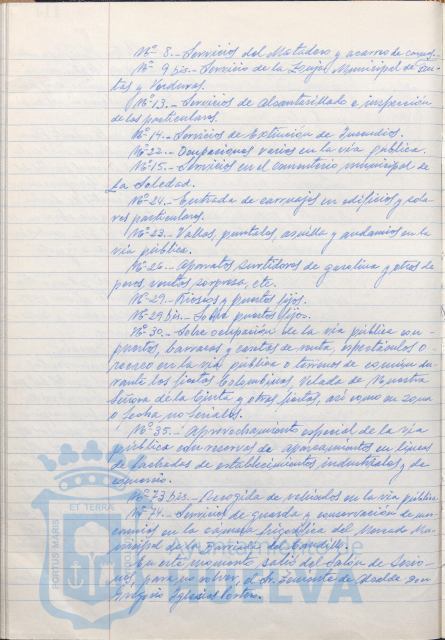 Nº 8.- Servicios del Matadero y acarreo de carnes.
Nº 9 bis.- Servicio de la Lonja Municipal de Fru-
tas y Verduras.
Nº 13.- Servicios de alcantarillado e inspección
de los particulares.
Nº 14.- Servicios de Extinción de Incendios.
Nº 22.- Ocupaciones varias en la vía pública.
Nº 15.- Servicios en el cementerio municipal de
La Soledad.
Nº 24.- Entrada de carruajes en edificios y sola-
res particulares.
Nº 23.- Vallas, puntales, asnillas y andamios en la
vía pública.
Nº 26.- Aparatos surtidores de gasolina y otros de
ventas sorpresa, etc.
Nº 29.- Kioscos y puntos fijos.
Nº 29 bis.- Sobre puestos fijos.
Nº 30.- Sobre ocupación de la vía pública con
puestos, barracas y casetas de venta, espectáculos o
recreo en la vía pública o terrenos du-
rante las fiestas Colombinas, velada de Nuestra
Señora de la Cinta y otras fiestas, así como en zona
o fecha no señalada.
Nº 35.- Aprovechamiento especial de la vía
pública con reservas de aparcamientos en líneas
de fachadas de establecimientos industriales y de
comercio.
Nº 73 bis.- Recogida de vehículos en la vía pública.
Nº 74.- Servicios de guarda y conservación de
en la cámara frigorífica del Mercado Mu-
nicipal de la Barriada del
En este momento salió del Salón de Sesio-
nes, para no volver, el Sr. Teniente de Alcalde don
Iglesias
PORTUS MARIS ET TERRA
HUELVA